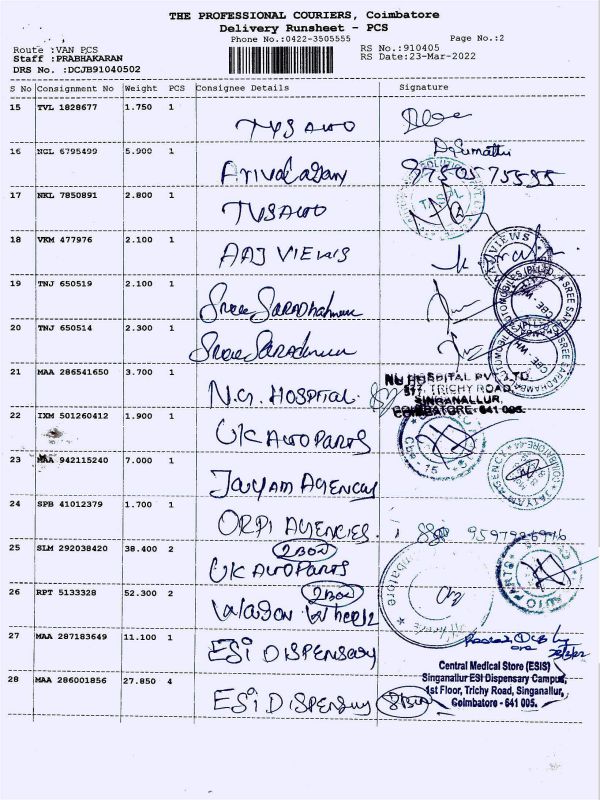 THE PROFESSIONAL COURIERS, Coimbatore
Delivery Runsheet - PCS
Phone No.:0422-3505555
Page No.:2
Route :VAN PCS
RS No.:910405
Staff :PRABHAKARAN
RS Date:23-Mar-2022
DRS No. :DCJB91040502
S No Consignment No Weight PCS Consignee Details Signature
15 TVL 1828677 1.750 1
TVS AUTO
16 NGL 6795499 5.900 1
D. Sumathi
Arivalagan 97505 75555
17 NKL 7850891 2.800 1
TASPL
TVS AUTO
18 VKM 477976 2.100 1
AAJ VIEWS
19 TNJ 650519 2.100 1
20 TNJ 650514 2.300 1
21 MAA 286541650 3.700 1
NU HOSPITAL PVT LTD
577, TRICHY ROAD,
SINGANALLUR,
COIMBATORE- 641 005.
N.G. HOSPITAL
22 IXM 501260412 1.900 1
UK AUTO PARTS
23 MAA 942115240 7.000 1
JAYAM AGENCY
24 SPB 41012379 1.700 1
ORPI AGENCIES
25 SLM 292038420 38.400 2
2 BOX
UK AUTO PARTS
26 RPT 5133328 52.300 2
2 BOX
Wagon Wheelz
27 MAA 287183649 11.100 1
ESI DISPENSARY
28 MAA 286001856 27.850 4
Central Medical Store (ESIS)
Singanallur ESI Dispensary Campus,
1st Floor, Trichy Road, Singanallur,
Coimbatore - 641 005.
ESI DISPENSARY